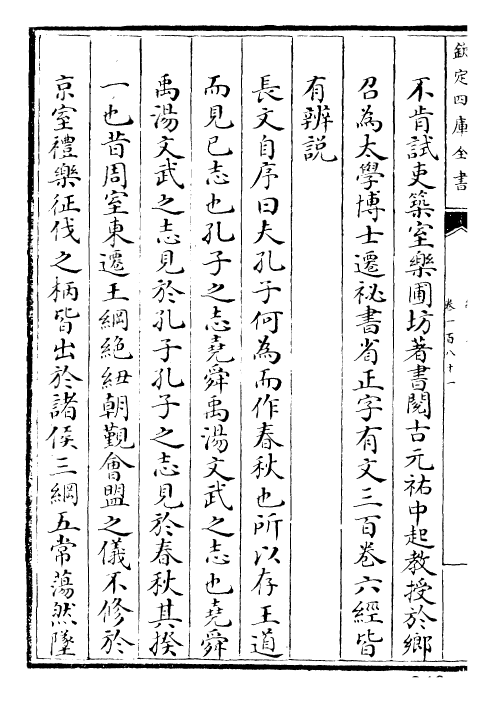 欽定四庫全書
卷一百八十一
不肯試吏築室樂圃坊著書閱古元祐中起教授於鄉
召為太學博士遷祕書省正字有文三百卷六經皆
有辨説
長文自序曰夫孔子何為而作春秋也所以存王道
而見已志也孔子之志堯舜禹湯文武之志也堯舜
禹湯文武之志見於孔子孔子之志見於春秋其揆
一也昔周室東遷王綱絶紐朝覲會盟之儀不修於
京室禮樂征伐之柄皆出於諸侯三綱五常蕩然墜